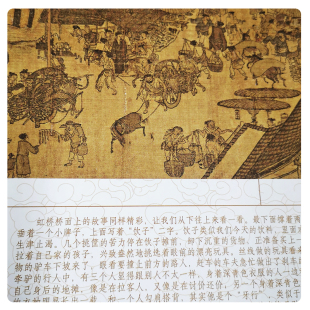 虹桥桥面上的故事同样精彩，让我们从下往上来看一看。最下面撑着两
垂着一个小牌子，上面写着“饮子”二字，饮子类似我们今天的饮料，里面
生津止渴。几个挑筐的苦力停在饮子摊前，卸下沉重的货物，正准备买上一
拉着自己家的孩子，兴致盎然地挑选着眼前的漂亮玩具，丝线做的玩具
物的驴车下坡来了，眼看要撞上前方的路人，赶车的车夫急忙做出了刹车
李驴的行人中，有三个人显得跟别人不太一样。身着深青色衣服的人一边
自己身后的地摊，像是在拉客人，又像是在讨价还价，另一个身着深青色
和一个人勾肩搭背，其实他是个“牙行”，类似于